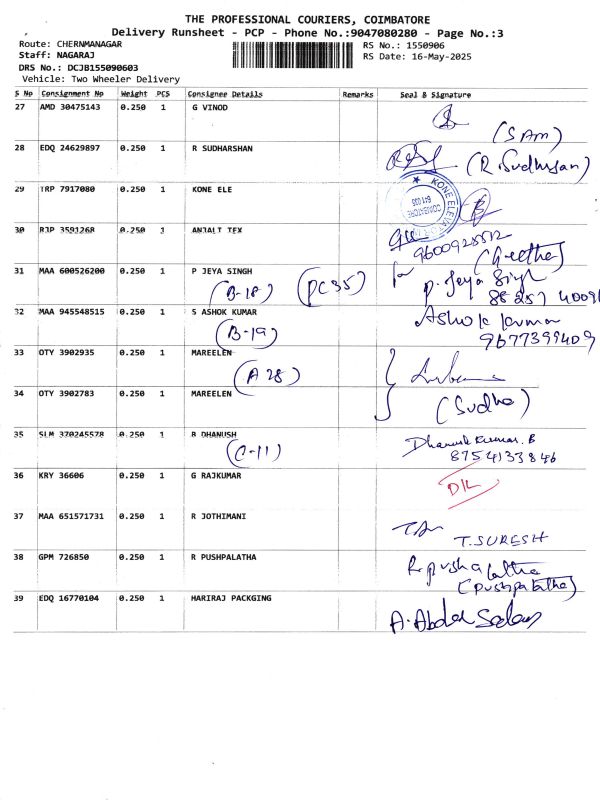 THE PROFESSIONAL COURIERS, COIMBATORE
Delivery Runsheet - PCP - Phone No.:9047080280 - Page No.:3
Route: CHERNMANAGAR RS No.: 1550906
Staff: NAGARAJ RS Date: 16-May-2025
DRS No.: DCJB155090603
Vehicle: Two Wheeler Delivery
S No Consignment No Weight PCS Consignee Details Remarks Seal & Signature
27 AMD 30475143 0.250 1 G VINOD
(SAM)
28 EDQ 24629897 0.250 1 R SUDHARSHAN
(R.Sudhrsan)
29 TRP 7917080 0.250 1 KONE ELE
KONE ELEVATOR
COIMBATORE
641 035
30 RJP 3591268 0.250 1 ANJALI TEX
9600928512
(Geetha)
31 MAA 600526200 0.250 1 P JEYA SINGH
(B-18) (PC 35) for P. Jeya Singh
88257 4009
32 MAA 945548515 0.250 1 S ASHOK KUMAR
(B-19) Ashok kumar
9677399409
33 OTY 3902935 0.250 1 MAREELEN
(A 28)
34 OTY 3902783 0.250 1 MAREELEN
(Sudha)
35 SLM 370245578 0.250 1 B DHANUSH
(C-11) Dhanush kumar. B
8754133846
36 KRY 36606 0.250 1 G RAJKUMAR
D/L
37 MAA 651571731 0.250 1 R JOTHIMANI
T.SURESH
38 GPM 726850 0.250 1 R PUSHPALATHA
R.pushpalatha
(pushpalatha)
39 EDQ 16770104 0.250 1 HARIRAJ PACKGING
A.Abdul